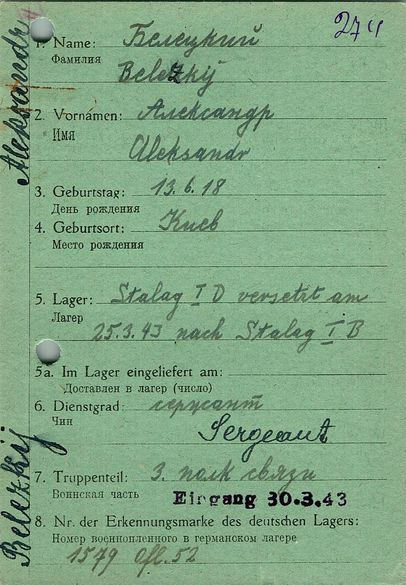 274
1. Name: Белецкий
Фамилия
Belezkij
2. Vornamen: Александр
Имя
Aleksandr
3. Geburtstag: 13.6.18
День рождения
4. Geburtsort: Киев
Место рождения
5. Lager: Stalag I D versetzt am
Лагер
25.3.43 nach Stalag I B
5a. Im Lager eingeliefert am:
Доставлен в лагер (число)
6. Dienstgrad: сержант
Чин
Sergeant
7. Truppenteil: 3. полк связи
Воинская часть
Eingang 30.3.43
8. Nr. der Erkennungsmarke des deutschen Lagers:
Номер военнопленного в германском лагере
1579 Ofl. 52
Belezkij Aleksandr